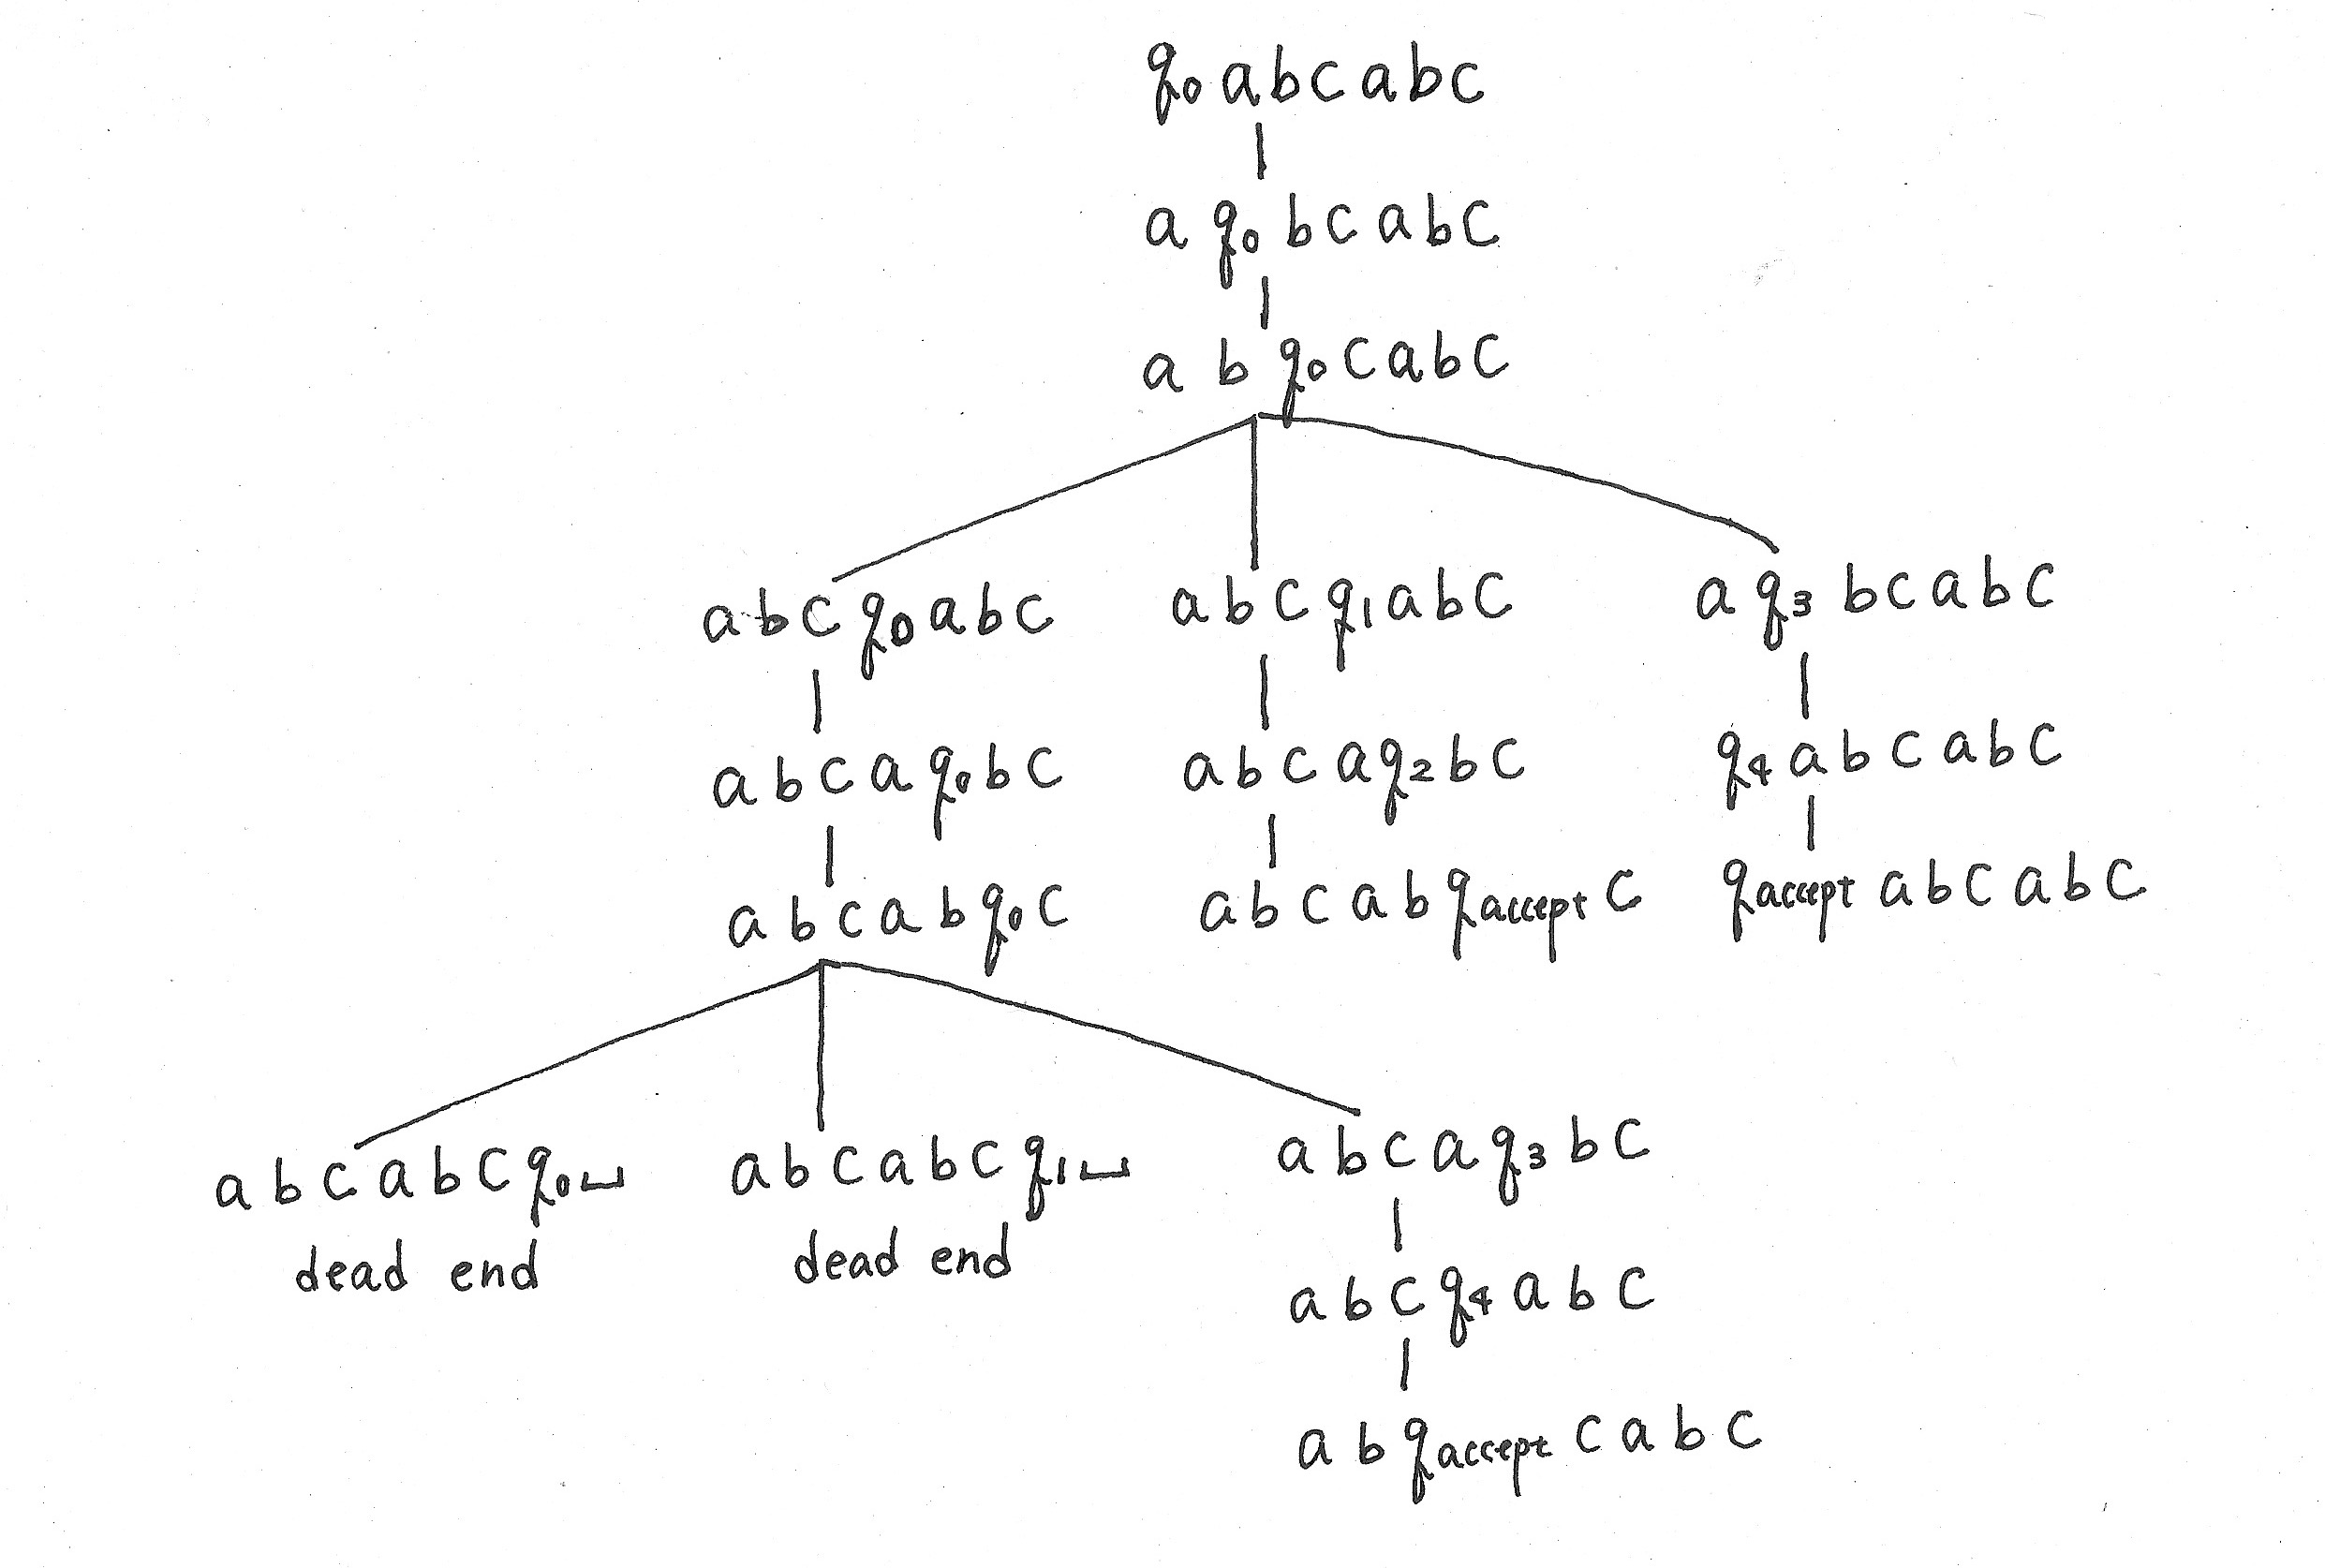 q₀ a b c a b c
a q₀ b c a b c
a b q₀ c a b c
a b c q₀ a b c
a b c q₁ a b c
a q₃ b c a b c
a b c a q₀ b c
a b c a q₂ b c
q₄ a b c a b c
a b c a b q₀ c
a b c a b q accept c
q accept a b c a b c
a b c a b c q₀ ␣
a b c a b c q₁ ␣
a b c a q₃ b c
dead end
dead end
a b c q₄ a b c
a b q accept c a b c